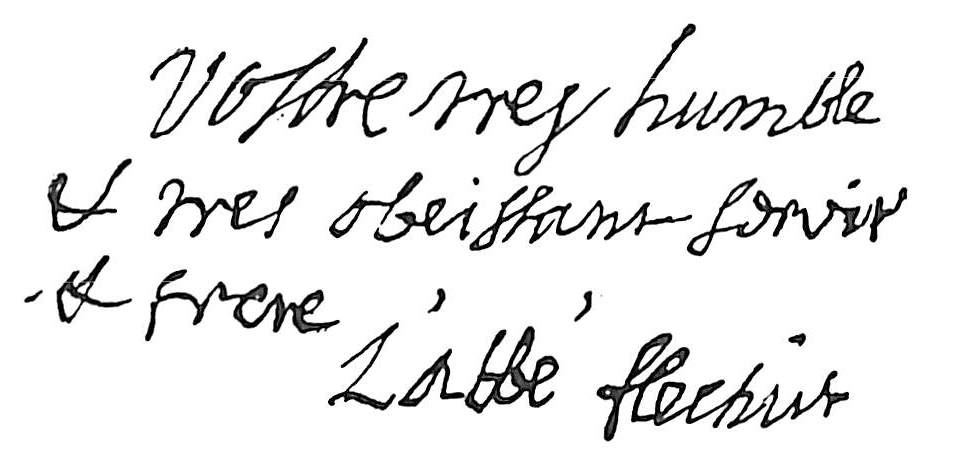 Vostre tres humble
& tres obeissant servit
& frere
L'abbé flechier